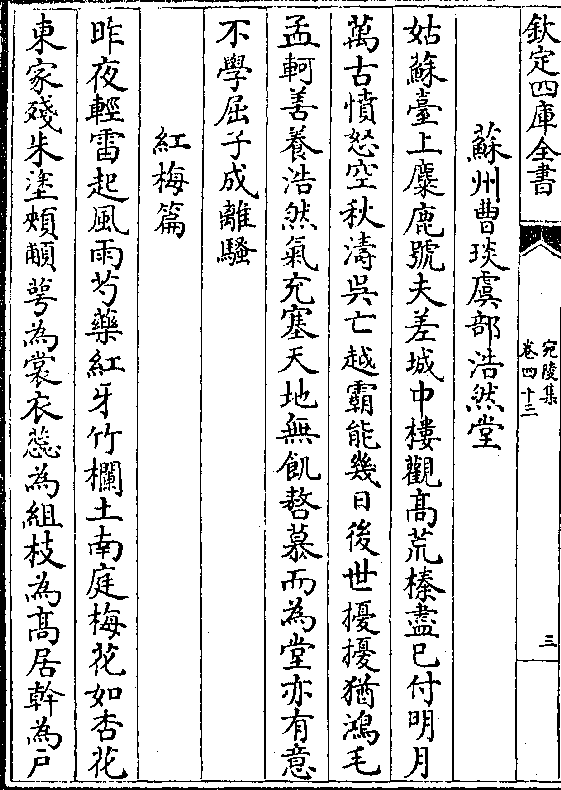 欽定四庫全書
宛陵集
卷四十三
三
蘇州曹琰虞部浩然堂
姑蘇臺上麋鹿號夫差城中樓觀髙荒榛盡已付明月
萬古憤怒空秋濤吳亡越霸能幾日後世擾擾猶鴻毛
孟軻善養浩然氣充塞天地無飢嗸慕而為堂亦有意
不學屈子成離騷
紅梅篇
昨夜輕雷起風雨芍藥紅牙竹欄土南庭梅花如杏花
東家殘朱塗頰顑萼為裳衣蘂為組枝為髙居幹為戸